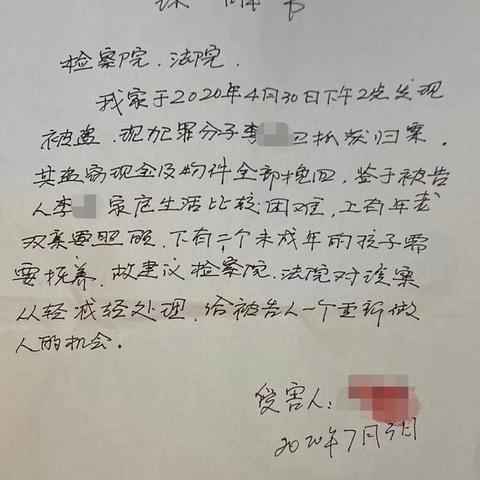 谅解书
检察院.法院.
我家于2020年4月30日下午2点发现
被盗.现犯罪分子李已抓获归案.
其盗窃现金及物件全部挽回.鉴于被告
人李家庭生活比较困难,上有年老
双亲要照顾.下有二个未成年的孩子需
要抚养.故建议检察院.法院对该案
从轻减轻处理.给被告人一个重新做
人的机会.
受害人:
2020年7月3日